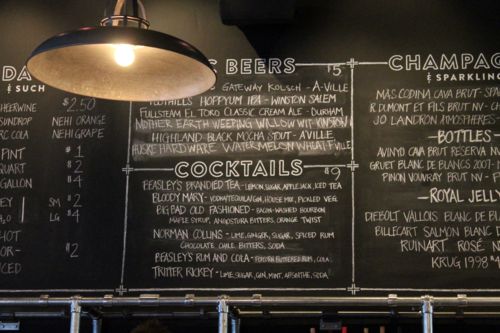 DA
& SUCH
HEERWINE $2.50
SUNDROP NEHI ORANGE
RC COLA NEHI GRAPE
PINT $1
QUART $2
GALLON $4
SM $2
LG $4
$2
BEERS $5
GATEWAY KOLSCH - A-VILLE
FOOTHILLS HOPPYUM IPA - WINSTON SALEM
FULLSTEAM EL TORO CLASSIC CREAM ALE - DURHAM
MOTHER EARTH WEEPING WILLOW WIT - KINSTON
HIGHLAND BLACK MOCHA STOUT - A-VILLE
HUSKE HARDWARE WATERMELON WHEAT - F-VILLE
COCKTAILS $9
BEASLEY'S BRANDIED TEA - LEMON, SUGAR, APPLEJACK, ICED TEA
BLOODY MARY - VODKA/TEQUILA/GIN, HOUSE MIX, PICKLED VEG.
BIG BAD OLD FASHIONED - BACON-WASHED BOURBON
MAPLE SYRUP, ANGOSTURA BITTERS, ORANGE TWIST
NORMAN COLLINS - LIME, GINGER, SUGAR, SPICED RUM
CHOCOLATE CHILE BITTERS, SODA
BEASLEY'S RUM AND COLA - POPCORN BUTTERED RUM, COLA
TRITTER RICKEY - LIME, SUGAR, GIN, MINT, ABSINTHE, SODA
CHAMPAG
& SPARKLIN
MAS CODINA CAVA BRUT - SP
R DUMONT ET FILS BRUT NV - F
JO LANDRON ATMOSPHERES -
BOTTLES
AVINYO CAVA BRUT RESERVA NV
GRUET BLANC DE BLANCS 2007 -
PINON VOUVRAY BRUT NV - F
ROYAL JELLY
DIEBOLT VALLOIS BLANC DE B
BILLECART SALMON BLANC DE
RUINART ROSÉ N
KRUG 1998 $4